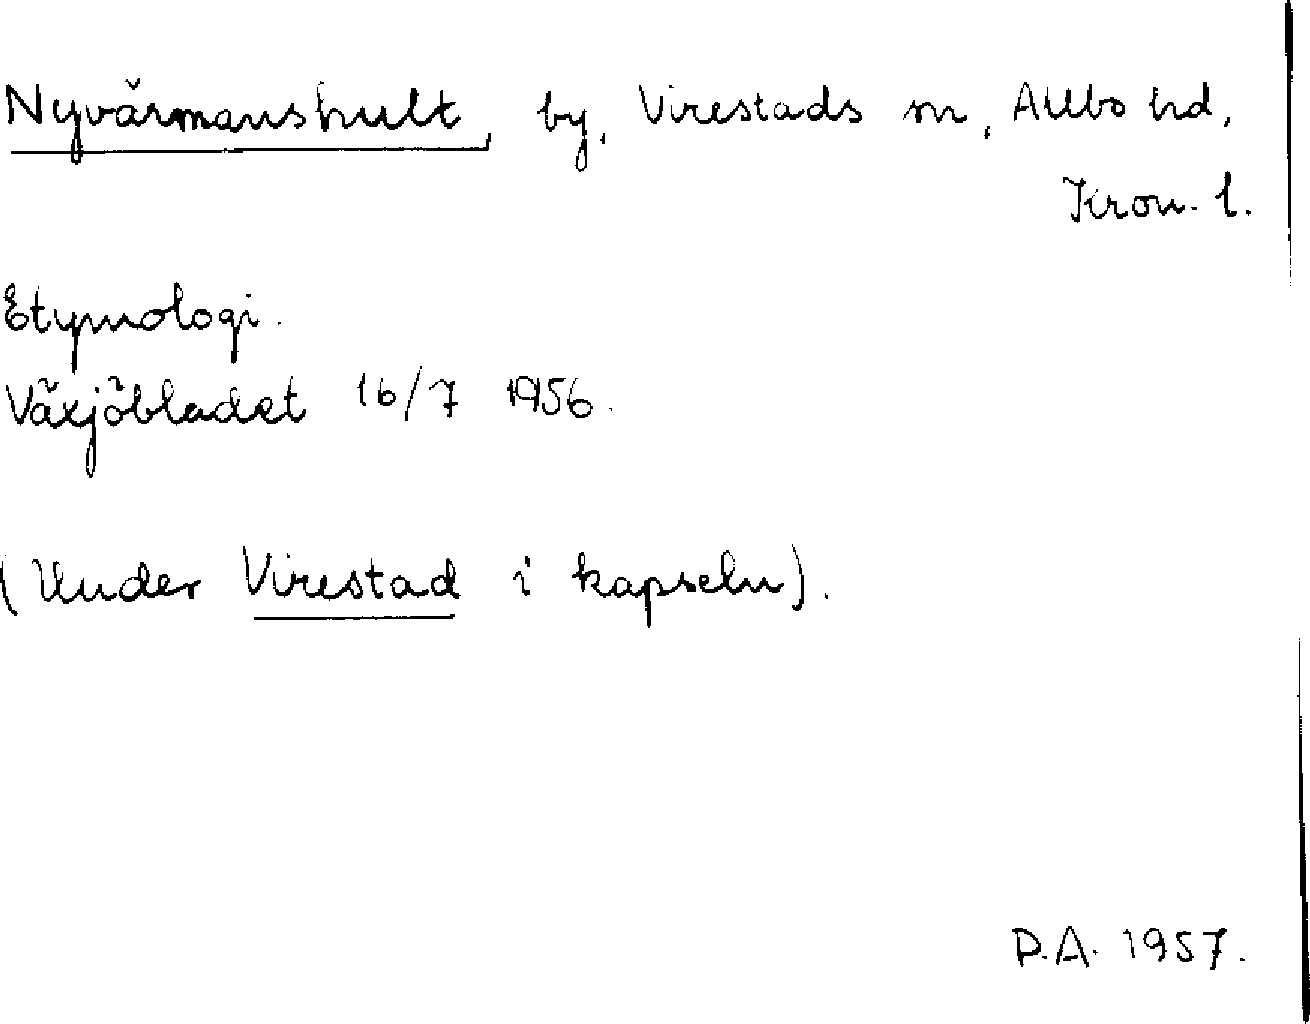 Nyvärmanshult, by, Virestads sn, Allbo hd,
Kron. l.
Etymologi.
Växjöbladet 16/7 1956.
(Under Virestad i kapseln).
P.A. 1957.